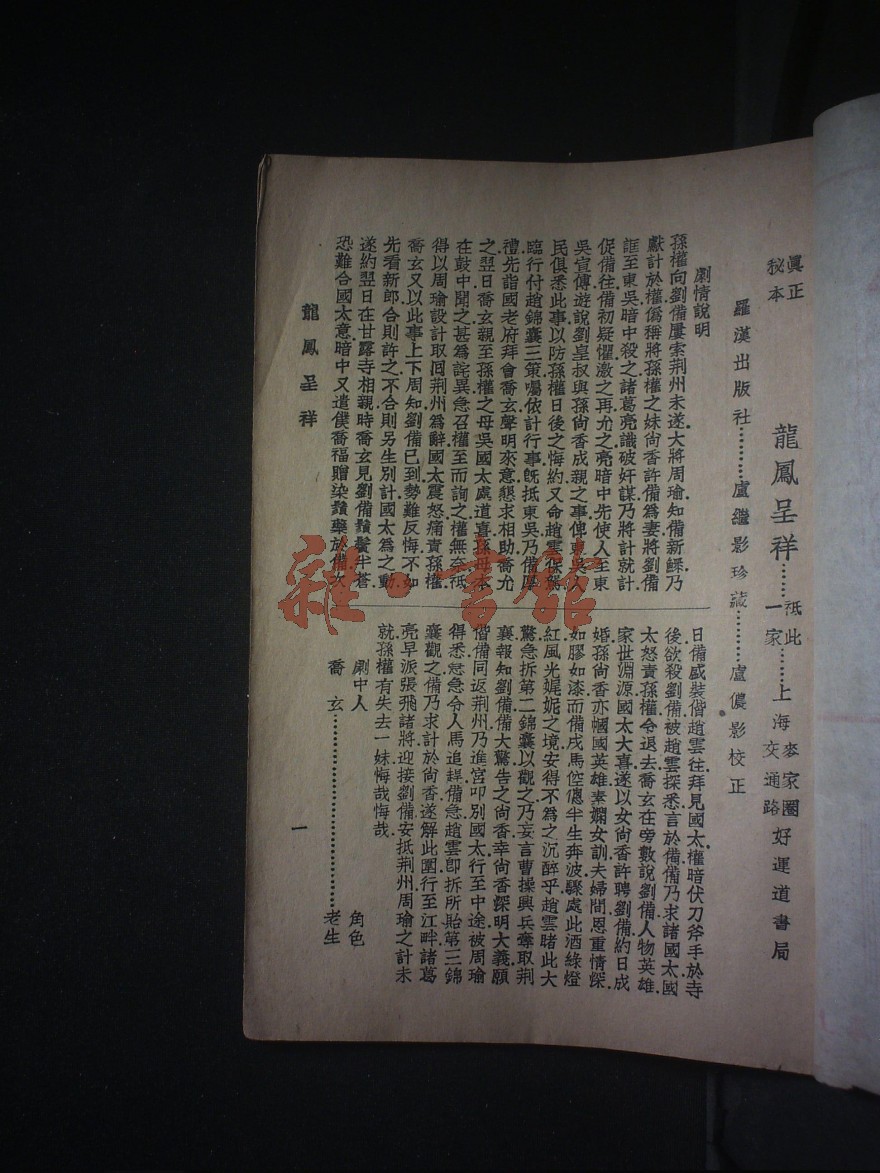 眞正秘本
龍鳳呈祥……祗此一家……上海麥家圈交通路好運道書局
羅漢出版社………盧繼影珍藏………盧儂影校正
劇情說明
孫權向劉備屢索荆州未遂大將周瑜知備新鰥乃
獻計於權僞稱將孫權之妹尙香許備爲妻將劉備
誆至東吳暗中殺之諸葛亮識破奸謀乃將計就計
促備往備初疑懼激之再允之亮暗中先使人至東
吳宣傳遊說劉皇叔與孫尙香成親之事俾東吳人
民俱悉此事以防孫權日後之悔約又命趙雲保駕
臨行付趙錦囊三策囑依計行事旣抵東吳乃備厚
禮先詣國老府拜會喬玄聲明來意懇求相助喬允
之翌日喬玄親至孫權之母吳國太處道喜孫母本
在鼓中聞之甚爲詫異急召權至而詢之權無奈祗
得以周瑜設計取囘荆州爲辭國太震怒痛責孫權
喬玄又以此事上下周知劉備已到勢難反悔不如
先看新郎合則許之不合則另生別計國太爲之動
遂約翌日在甘露寺相親時喬玄見劉備鬚鬢半蒼
恐難合國太意暗中又遣僕喬福贈染鬚藥於備次
日備盛裝偕趙雲往拜見國太權暗伏刀斧手於寺
後欲殺劉備被趙雲探悉言於備備乃求諸國太國
太怒責孫權令退去喬玄在旁數說劉備人物英雄
家世淵源國太大喜遂以女尙香許聘劉備約日成
婚孫尙香亦幗國英雄素嫻女訓夫婦間恩重情深
如膠如漆而備戎馬倥傯半生奔波驟處此酒綠燈
紅風光娓妮之境安得不爲之沉醉乎趙雲睹此大
驚急拆第二錦囊以觀之乃妄言曹操興兵奪取荆
襄報知劉備備大驚告之尙香幸尙香深明大義願
偕備同返荆州乃進宮叩別國太行至中途被周瑜
得悉忿急令人馬追趕備急趙雲卽拆所貽第三錦
囊觀之備乃求計於尙香遂解此圍行至江畔諸葛
亮早派張飛諸將迎接劉備安抵荆州周瑜之計未
就孫權有失去一妹悔哉悔哉
劇中人　角色
喬玄………………老生
龍鳳呈祥　一
雜·書館